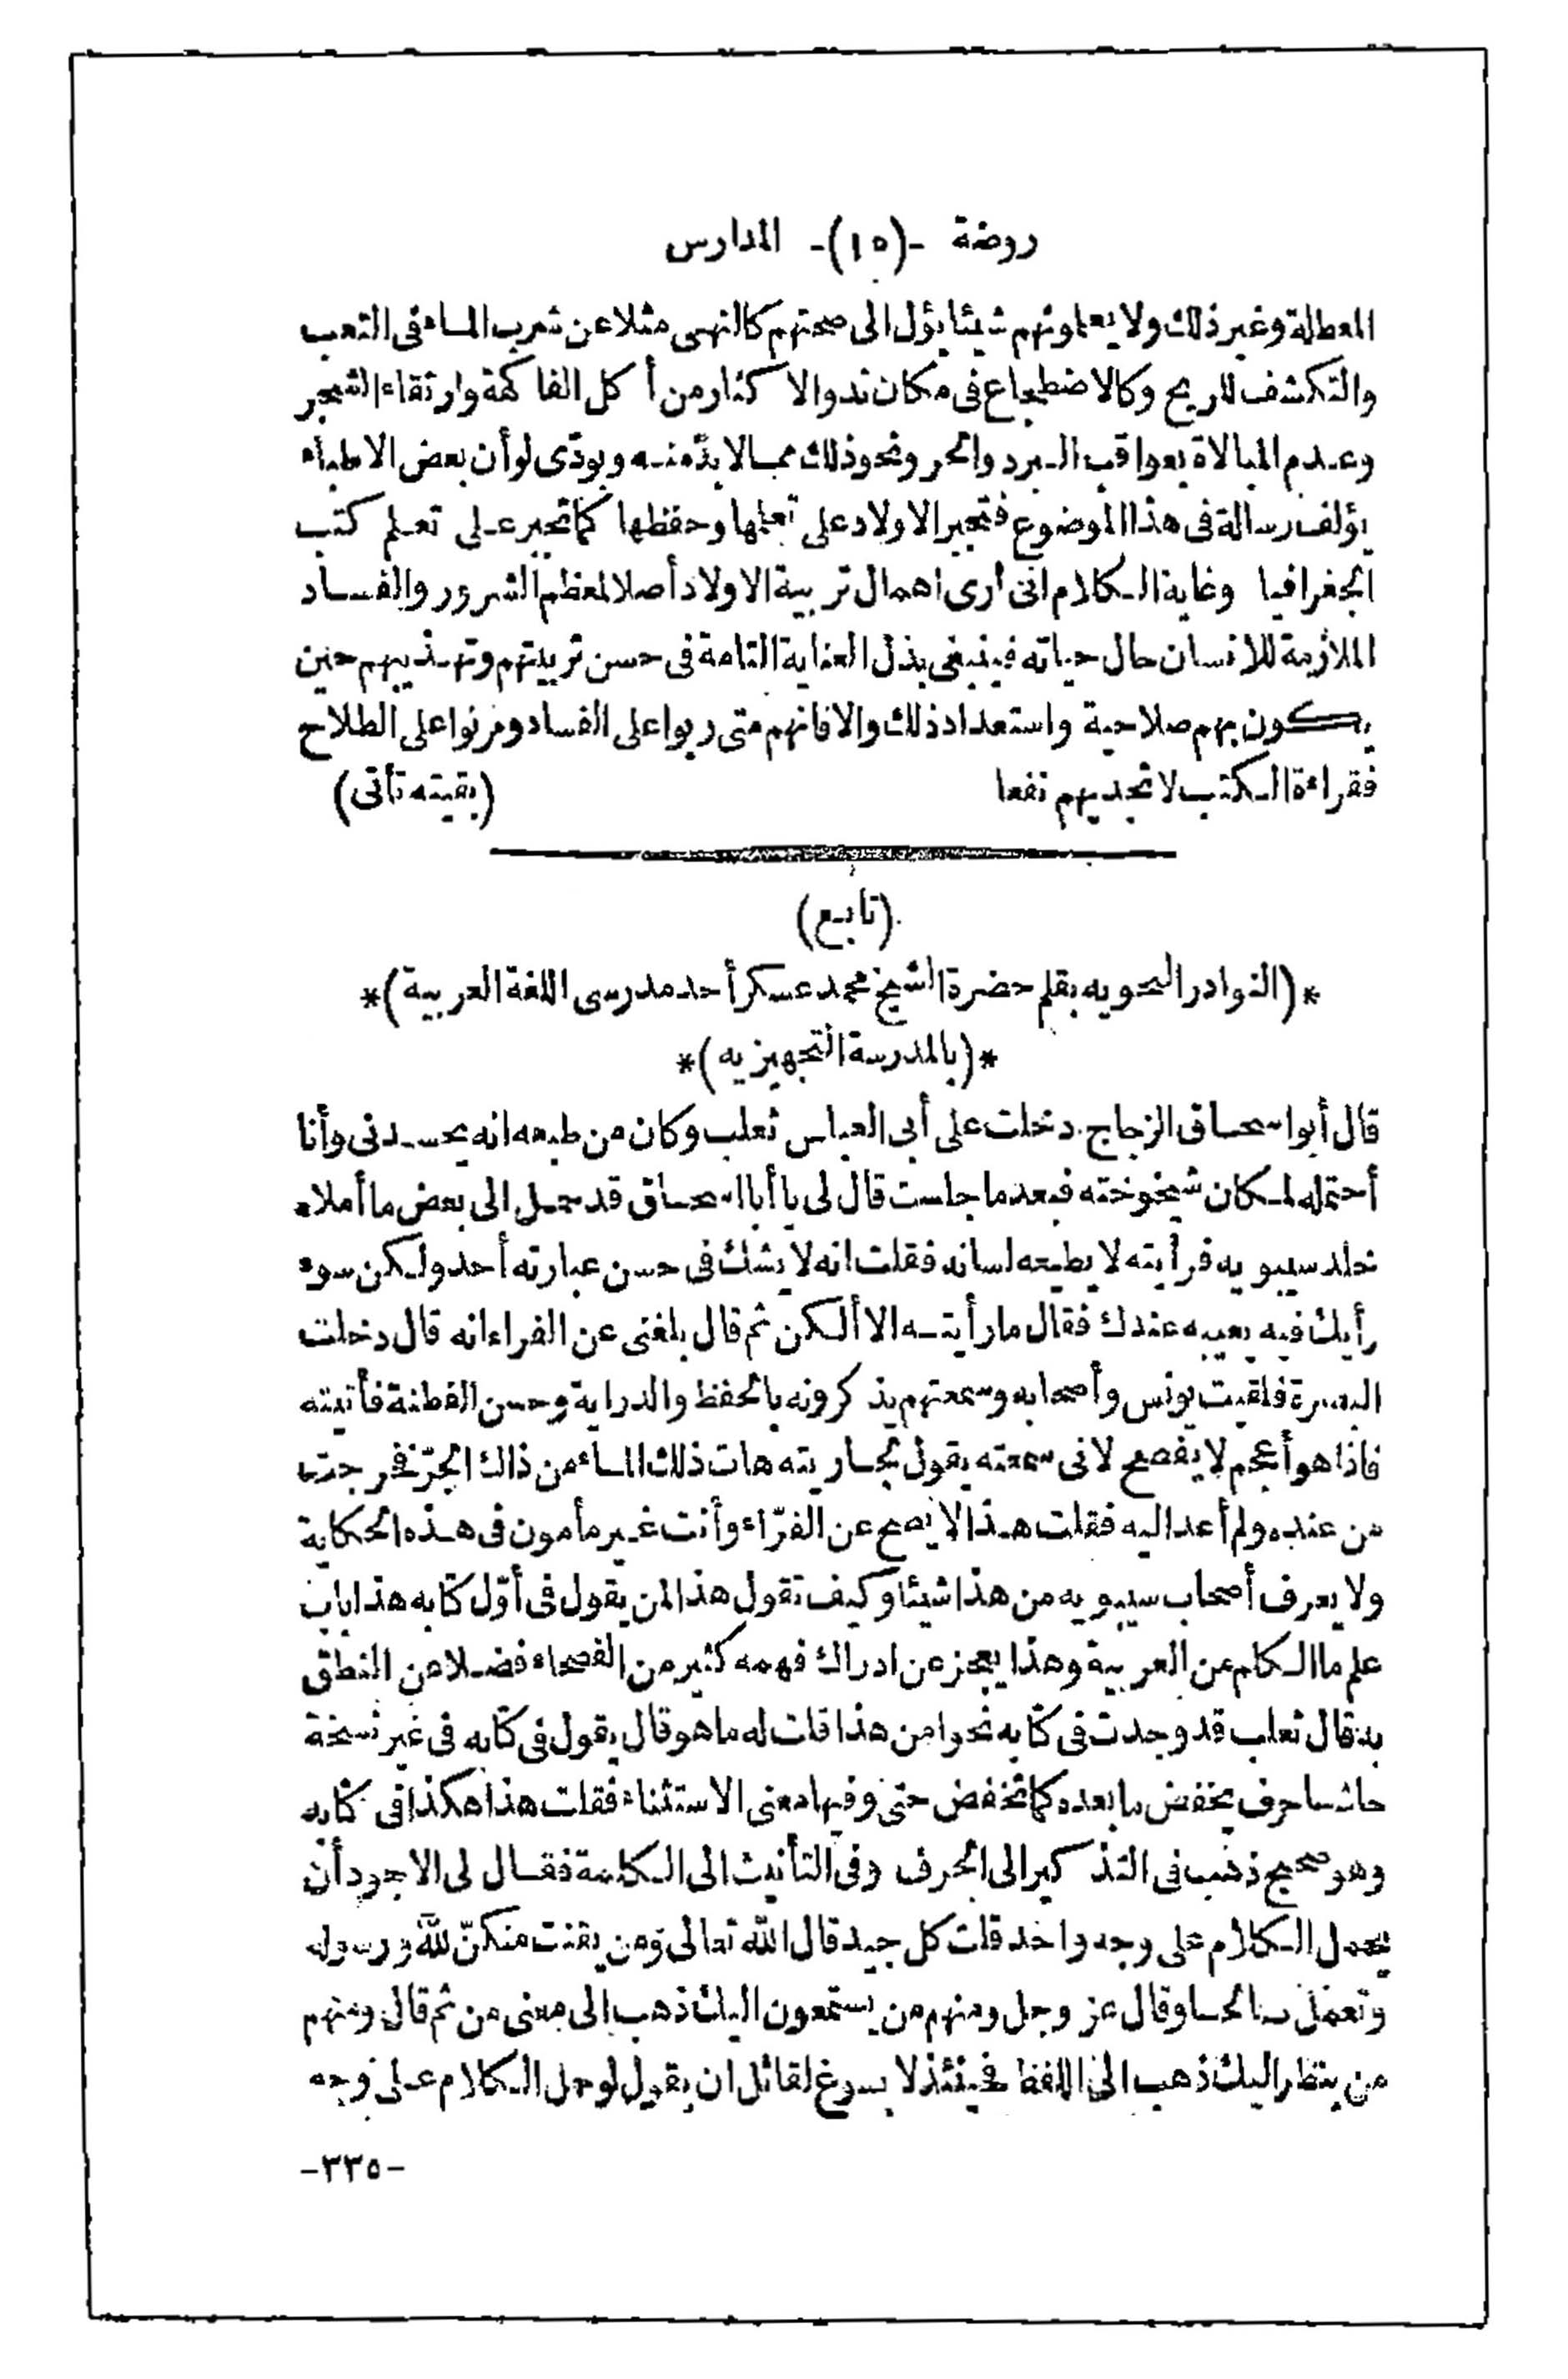 روضة -(١٥)- المدارس
المعطلة وغير ذلك ولا يعلونهم شيئا يؤل الى صحتهم كالنهى مثلا عن شرب الماء فى التعب
والتكشف للريح وكالاضطجاع فى مكان ند والاكثار من أكل الفاكهة وارتقاء الشجر
وعدم المبالاة بعواقب البرد والحر ونحو ذلك مما لا بدّ منه وبودّى لو أن بعض الاطباء
يؤلف رسالة فى هذا الموضوع فتجبر الاولاد على تعلمها وحفظها كما تجبر على تعلم كتب
الجغرافيا وغاية الكلام انى أرى اهمال تربية الاولاد أصلا لمعظم الشرور والفساد
الملازمة للانسان حال حياته فينبغى بذل العناية التامة فى حسن تربيتهم وتهذيبهم حين
يكون بهم صلاحية واستعداد ذلك والا فانهم متى ربوا على الفساد ومرنوا على الطلاح
فقراءة الكتب لا تجديهم نفعا (بقيته تأتى)
(تابع)
*(النوادر النحويه بقلم حضرة الشيخ محمد عسكر أحد مدرسى اللغة العربية)*
*(بالمدرسة التجهيزيه)*
قال أبو اسحاق الزجاج دخلت على أبى العباس ثعلب وكان من طبعه انه يحسدنى وأنا
أحتمله لمكان شيخوخته فبعد ما جلست قال لى يا أبا اسحاق قد حمل الى بعض ما أملاه
خلد سيبويه فرأيته لا يطيعه لسانه فقلت انه لا يشك فى حسن عبارته أحد ولكن سوء
رأيك فيه يعيبه عندك فقال ما رأيته الا ألكن ثم قال بلغنى عن الفراء انه قال دخلت
البصرة فلقيت يونس وأصحابه وسمعتهم يذكرونه بالحفظ والدراية وحسن الفطنة فأتيته
فاذا هو أعجم لا يفصح لانى سمعته يقول لجاريته هات ذلك الماء من ذاك الجرّ فخرجت
من عنده ولم أعد اليه فقلت هذا لا يصح عن الفرّاء وأنت غير مأمون فى هذه الحكاية
ولا يعرف أصحاب سيبويه من هذا شيئا وكيف تقول هذا لمن يقول فى أوّل كتابه هذا باب
علم ما الكلم من العربية وهذا يعجز عن ادراك فهمه كثير من الفصحاء فضلا عن النطق
به فقال ثعلب قد وجدت فى كتابه نحوا من هذا قلت له ما هو قال يقول فى كتابه فى غير نسخة
حاشا حرف يخفض ما بعده كما تخفض حتى وفيها معنى الاستثناء فقلت هذا هكذا فى كتابه
وهو صحيح ذهب فى التذكير الى الحرف وفى التأنيث الى الكلمة فقال لى الاجود أن
يحمل الكلام على وجه واحد قلت كل جيد قال الله تعالى ومن يقنت منكنّ لله ورسوله
وتعمل صالحا وقال عز وجل ومنهم من يستمعون اليك ذهب الى معنى من ثم قال ومنهم
من ينظر اليك ذهب الى اللفظ فحينئذ لا يسوغ لقائل ان يقول لو حمل الكلام على وجه
-٣٣٥-